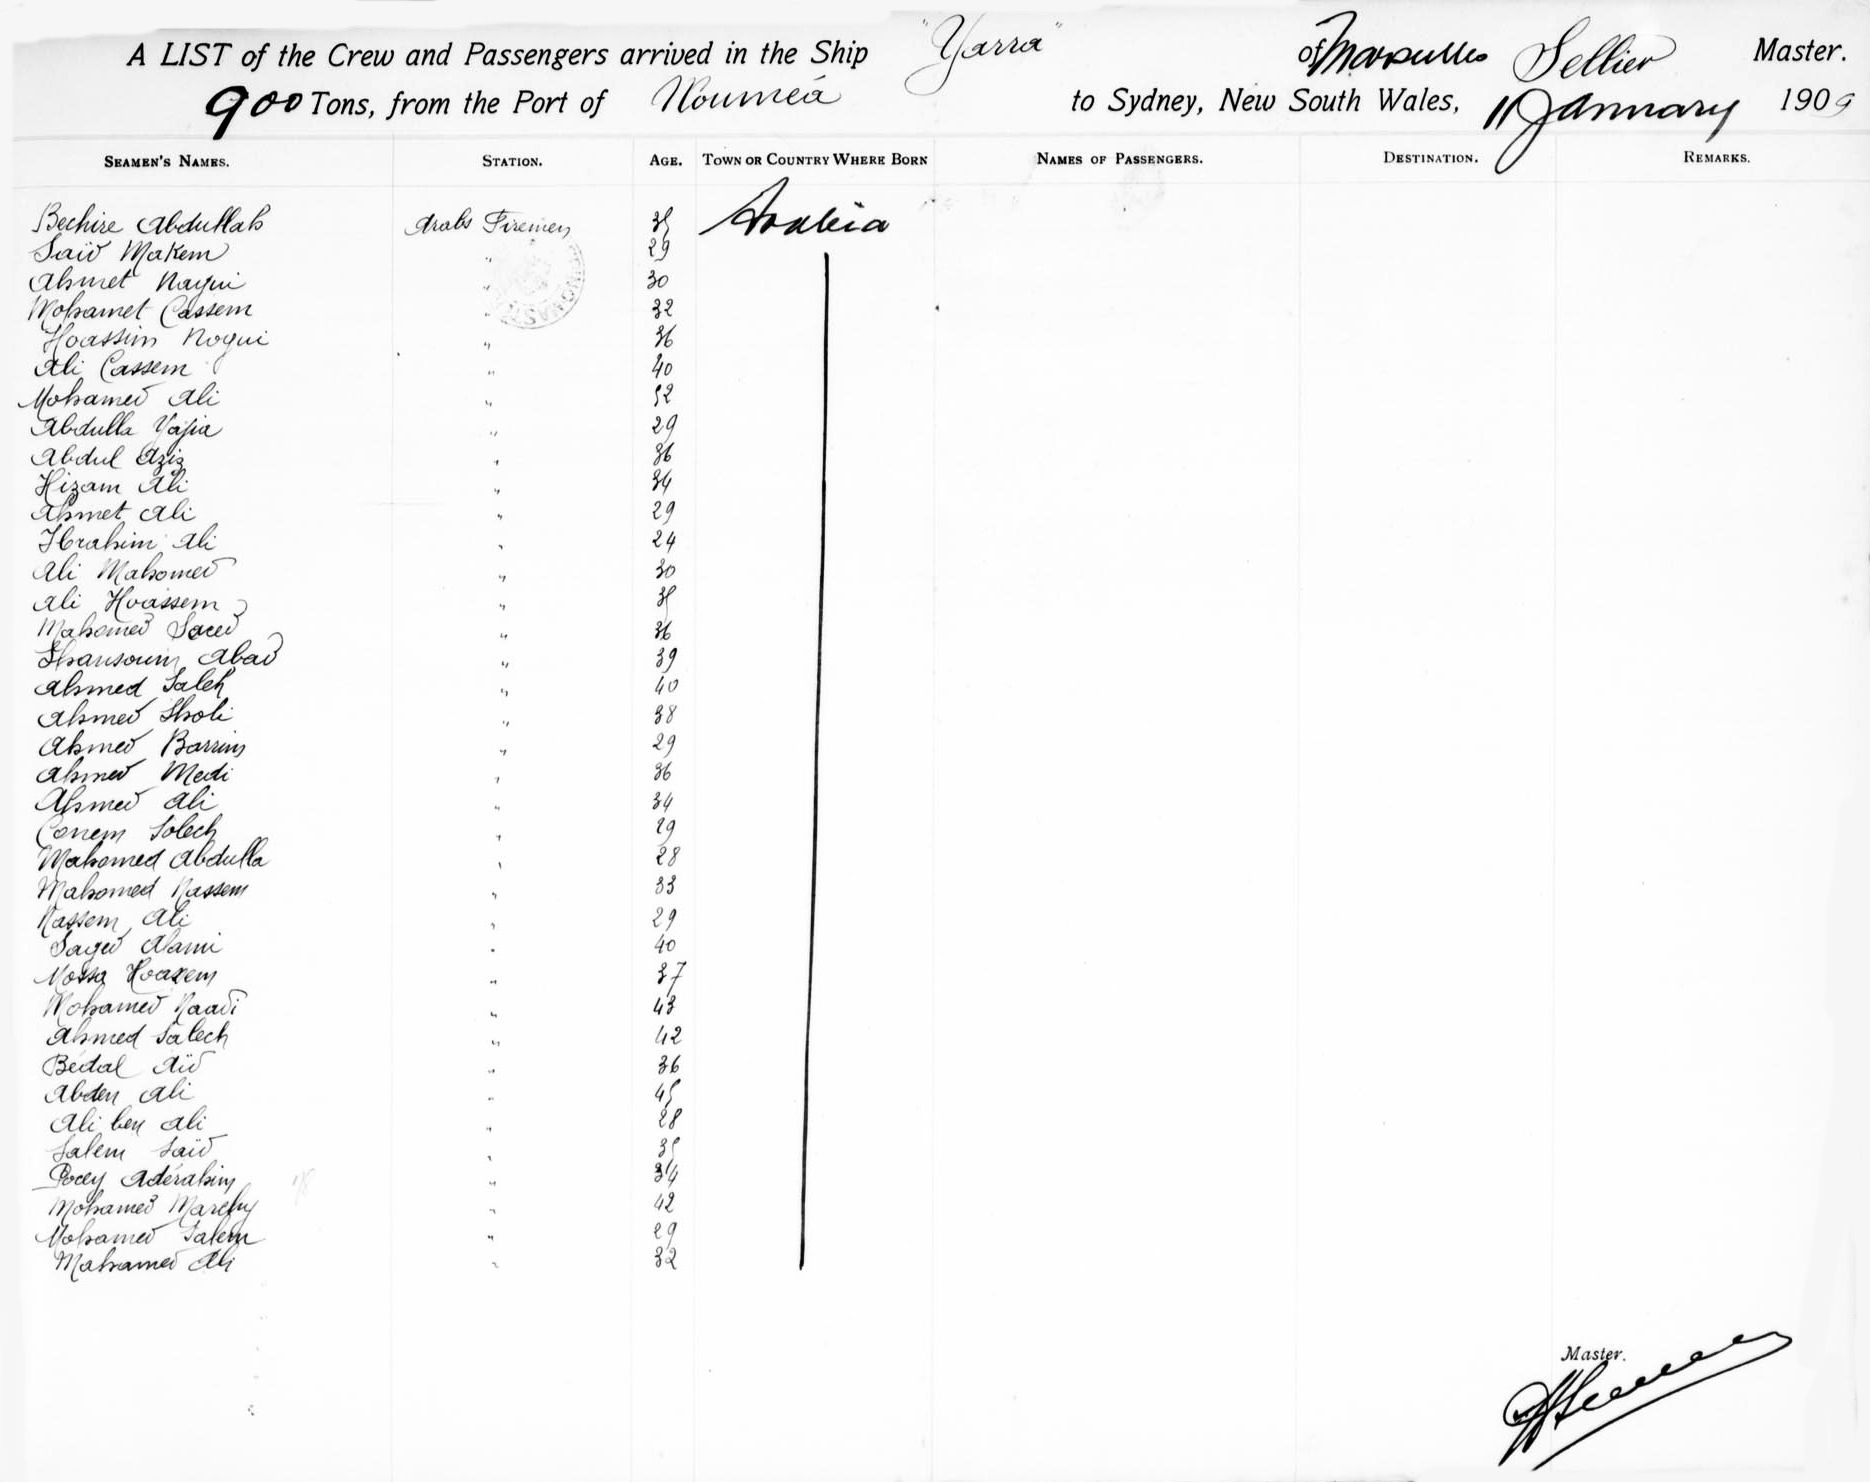 A LIST of the Crew and Passengers arrived in the Ship "Yarra" of Marseilles Sellier Master.
900 Tons, from the Port of Nouméa to Sydney, New South Wales, 11 January 1909
SEAMEN'S NAMES. STATION. AGE. TOWN OR COUNTRY WHERE BORN NAMES OF PASSENGERS. DESTINATION. REMARKS.
Bechire Abdullah Arabs Firemen 35 Arabia
Saïd Makem " 29
Ahmet Nagui " 30
Mohamet Cassem " 32
Hoassim Nogui " 36
Ali Cassem " 40
Mohamed Ali " 52
Abdulla Yajia " 29
Abdul Aziz " 36
Hizam Ali " 34
Ahmet Ali " 29
Ibrahim Ali " 24
Ali Mahomed " 30
Ali Hoassem " 35
Mahomed Saeed " 36
Shansoum Abad " 39
Ahmed Saleh " 40
Ahmed Sholi " 38
Ahmed Barrim " 29
Ahmed Medi " 36
Ahmed Ali " 34
Conem Solech " 29
Mahomed Abdulla " 28
Mahomed Nassem " 33
Nassem Ali " 29
Sayed Alami " 40
Mossa Hoazem " 37
Mohamed Naadi " 43
Ahmed Salech " 42
Bedal Aïd " 36
Abden Ali " 45
Ali ben Ali " 28
Salem Saïd " 35
Pocey Aderahim " 34
Mohamed Marehy " 42
Mohamed Salem " 29
Mahamed Ali " 32
Master.